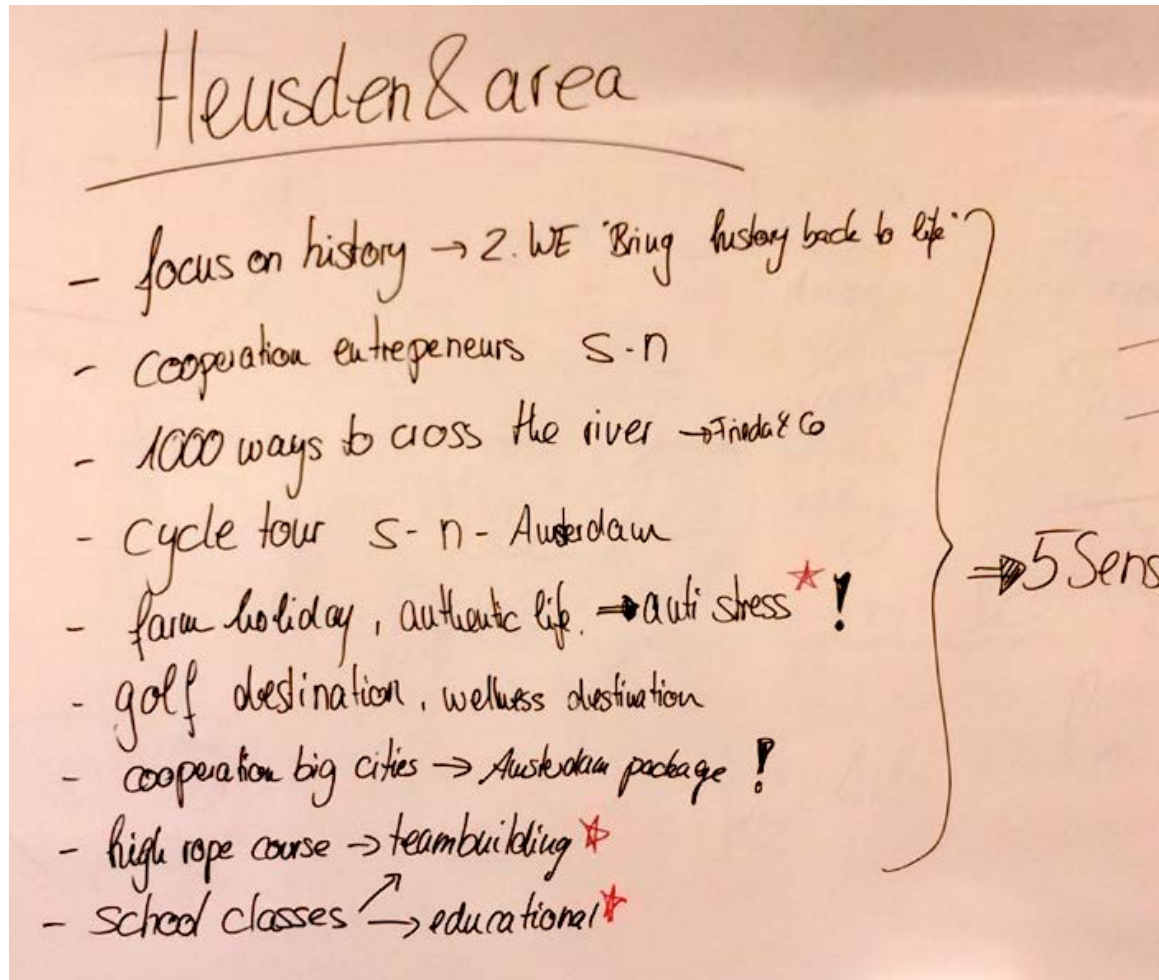 Heusden & area
- focus on history → 2. WE "Bring history back to life"
- cooperation entrepeneurs s-n
- 1000 ways to cross the river → & Co
- cycle tour s-n-Amsterdam
- farm holiday, authentic life. ⇒ anti stress ☆ !
- golf destination, wellness destination
- cooperation big cities → Amsterdam package !
- high rope course → teambuilding ☆
- school classes → educational ☆
⇒ 5 Sens